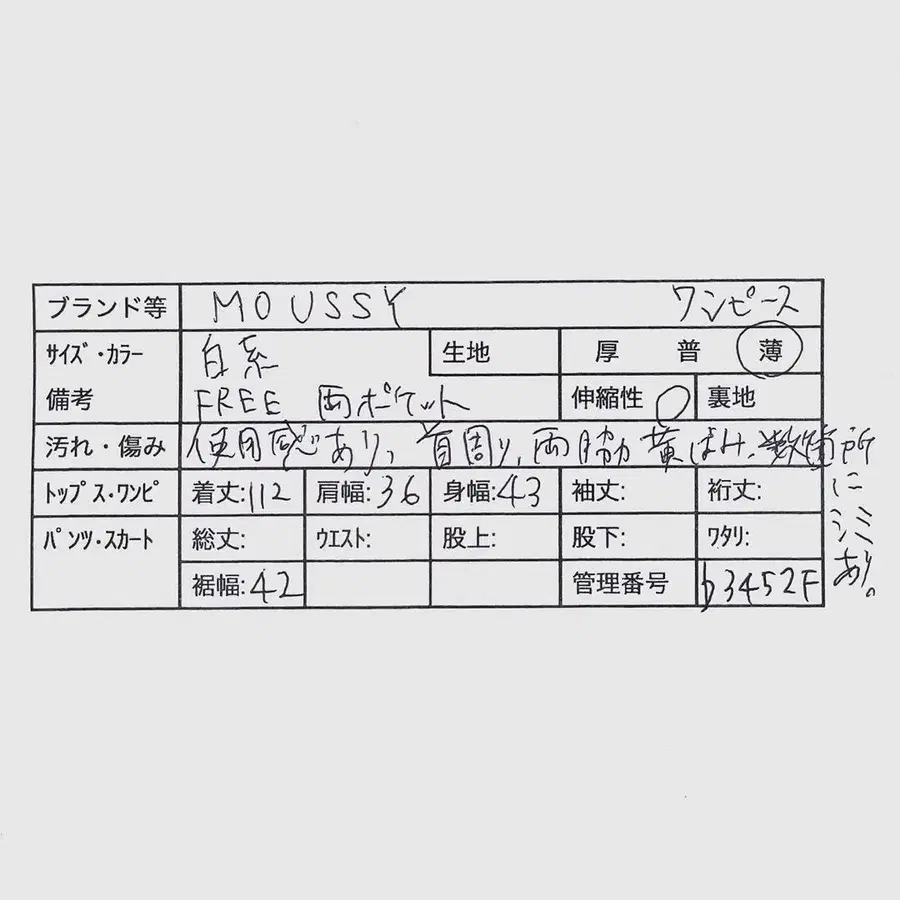 ブランド等 MOUSSY ワンピース
サイズ・カラー 白系 生地 厚 普 薄
備考 FREE 両ポケット 伸縮性 ○ 裏地
汚れ・傷み 使用感あり、首周り、両脇黄ばみ、数箇所にシミあり。
トップス・ワンピ 着丈:112 肩幅:36 身幅:43 袖丈: 裄丈:
パンツ・スカート 総丈: ウエスト: 股上: 股下: ワタリ:
裾幅:42 管理番号 b3452F